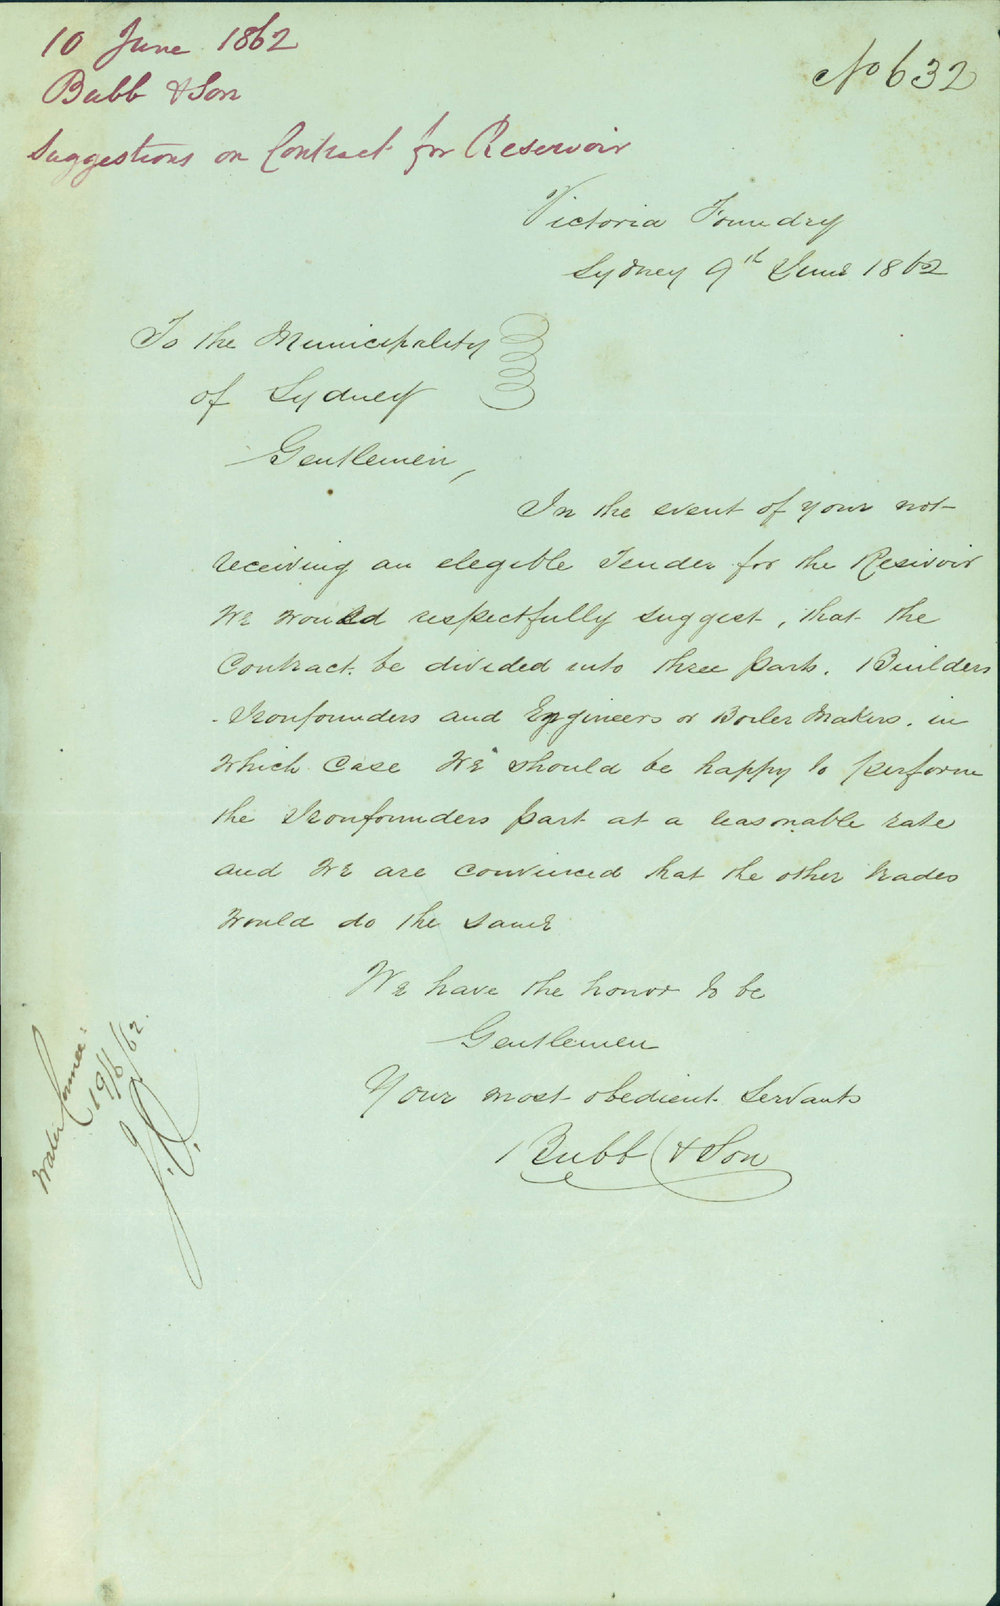 10 June 1862
Bubb & Son
Suggestions on Contract for Reservoir
No 632
Victoria Foundry
Sydney 9th June 1862
To the Municipality
of Sydney
Gentlemen,
In the event of your not
receiving an elegible Tender for the Resivoir
We would respectfully suggest, that the
Contract be divided into three parts. Builders
Ironfounders and Engineers or Boiler Makers. in
which case We should be happy to perform
the Ironfounders part at a reasonable rate
and We are convinced that the other trades
would do the same
We have the honor to be
Gentlemen
Your most obedient Servants
Bubb & Son
Water Commee:
19/6/62.